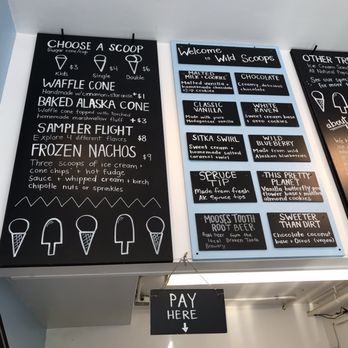 CHOOSE A SCOOP
Sugar cone/cup
$3 $4 $6
Kids Single Double
WAFFLE CONE
Handmade w/cinnamon+cardamom +$1
BAKED ALASKA CONE
Waffle cone topped with torched
homemade marshmallow fluff +$3
SAMPLER FLIGHT
Explore 4 different flavors $8
FROZEN NACHOS
Three scoops of ice cream + $9
cone chips + hot fudge
sauce + whipped cream + birch
chipotle nuts or sprinkles
Welcome
to Wild Scoops
MALTED
MILK + COOKIES
Malted vanilla +
homemade chocolate
chip cookies
CHOCOLATE
Creamy, delicious
dark chocolate
CLASSIC
VANILLA
Made with pure
Madagascar vanilla
WHITE
RAVEN
Sweet cream base +
oreo cookies
SITKA SWIRL
Sweet cream +
homemade salted
caramel swirl
WILD
BLUEBERRY
Made from wild
Alaskan blueberries
SPRUCE
TIP
Made from fresh
AK spruce tips
THIS PRETTY
PLANET
Vanilla butterfly pea
flower base +
almond cookies
MOOSES TOOTH
ROOT BEER
Root beer from the
local Broken Tooth
Brewery
SWEETER
THAN DIRT
Chocolate coconut
base + Oreos (vegan)
OTHER TR
Ice Cream
All Natural
See our
PAY
HERE ↓